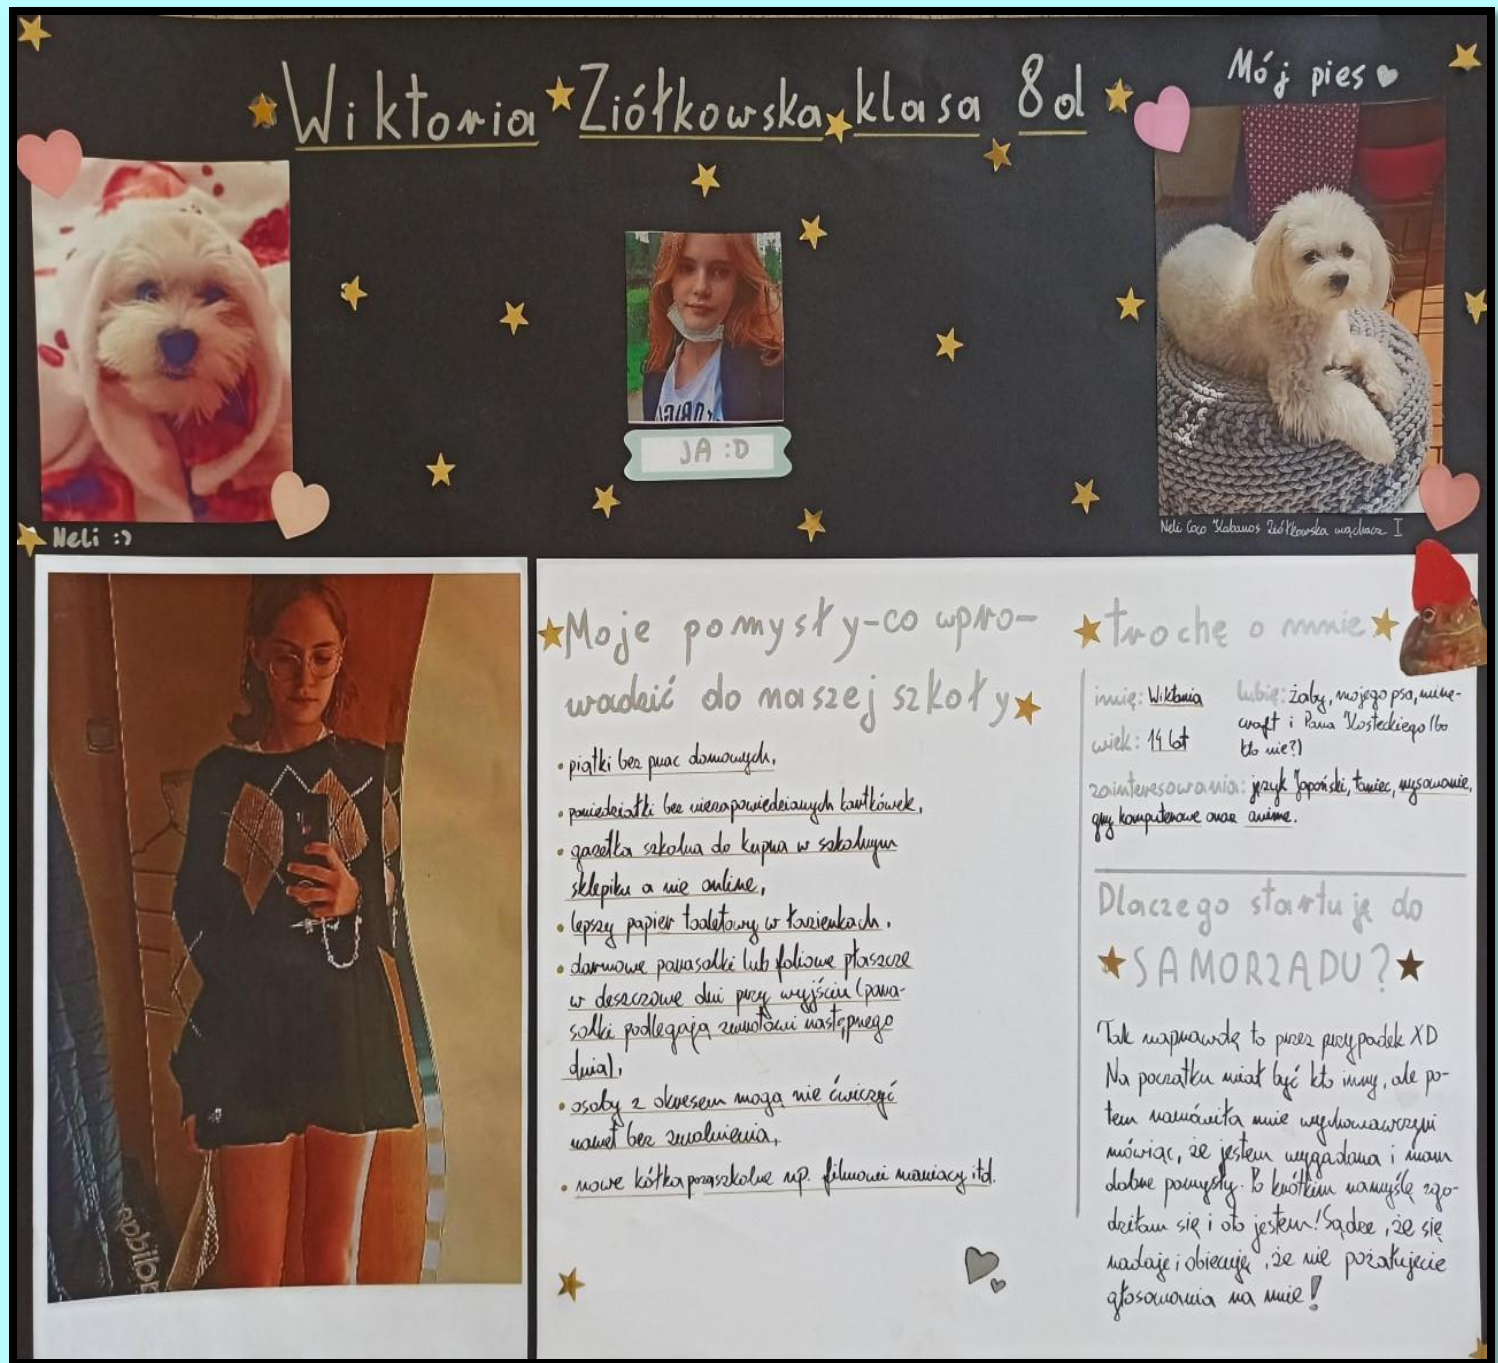 Wiktoria Ziółkowska klasa 8d
Mój pies
JA :D
Neli :)
Neli Coco Kabanos Ziółkowska wąchacz I
Moje pomysły-co wpro-
wadzić do naszej szkoły
• piątki bez prac domowych,
• poniedziałki bez niezapowiedzianych kartkówek,
• gazetka szkolna do kupna w szkolnym
sklepiku a nie online,
• lepszy papier toaletowy w łazienkach,
• darmowe parasolki lub foliowe płaszcze
w deszczowe dni przy wyjściu (para-
solki podlegają zwrotowi następnego
dnia),
• osoby z okresem mogą nie ćwiczyć
nawet bez zwolnienia,
• nowe kółka pozaszkolne np. filmowi maniacy itd.
trochę o mnie
imię: Wiktoria
wiek: 14 lat
lubię: żaby, mojego psa, mine-
craft i Pana Kosteckiego (bo
kto nie?)
zainteresowania: język Japoński, taniec, rysowanie,
gry komputerowe oraz anime.
Dlaczego startuję do
SAMORZĄDU?
Tak naprawdę to przez przypadek XD
Na początku miał być kto inny, ale po-
tem namówiła mnie wychowawczyni
mówiąc, że jestem wygadana i mam
dobre pomysły. Po krótkim namyśle zgo-
dziłam się i oto jestem! Sądzę, że się
nadaję i obiecuję, że nie pożałujecie
głosowania na mnie!